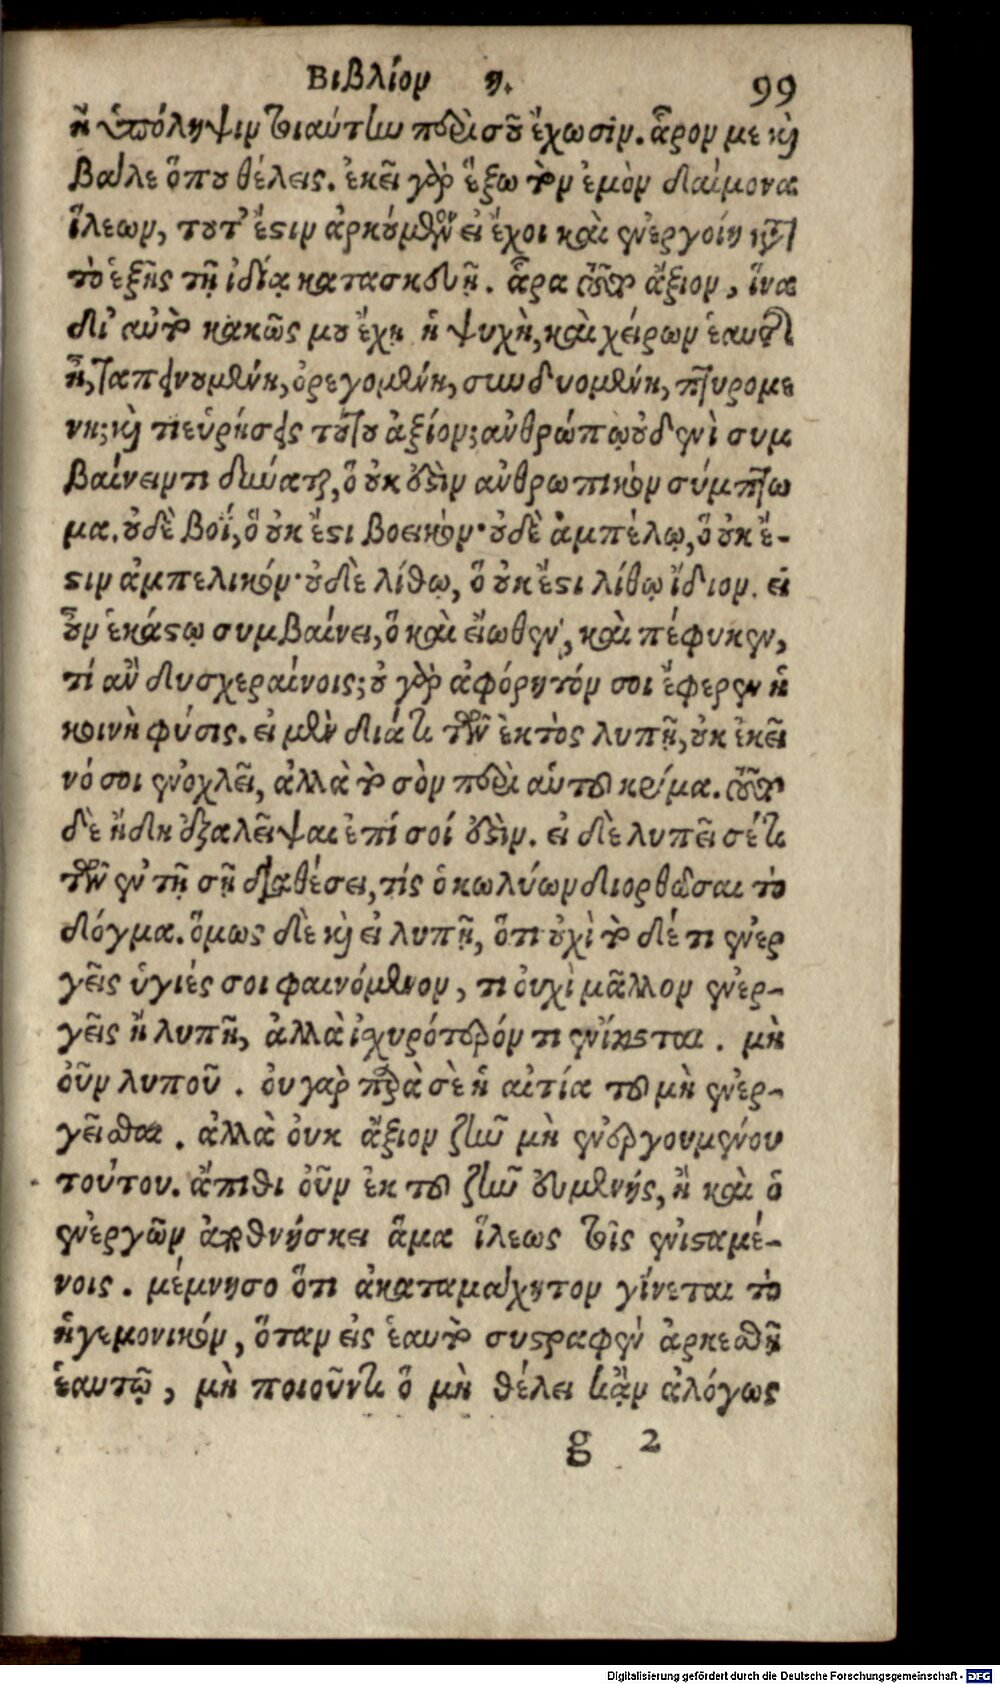 Βιβλίον η. 99
ἢ ὑπόληψιν τοιαύτην περὶ σοῦ ἔχωσιν. ἆρον με καὶ
βάλε ὅπου θέλεις. ἐκεῖ γὰρ ἕξω τὸν ἐμὸν δαίμονα
ἵλεων, τουτ' ἔστιν ἀρκούμενον εἰ ἔχοι καὶ ἐνεργοίη κατὰ
τὸ ἑξῆς τῇ ἰδίᾳ κατασκευῇ. ἆρα τοῦτο ἄξιον, ἵνα
δι' αὐτὸ κακῶς μου ἔχῃ ἡ ψυχὴ, καὶ χείρων ἑαυτῆς
ᾖ, ταπεινουμένη, ὀρεγομένη, συνδυομένη, πτυρομέ
νη; καὶ τί εὑρήσεις τούτου ἀξίον; ἀνθρώπῳ οὐδενὶ συμ
βαίνειν τι δύναται, ὃ οὐκ ἔστιν ἀνθρωπικὸν σύμπτω
μα. οὐδὲ βοῒ, ὃ οὐκ ἔστι βοεικόν· οὐδὲ ἀμπέλῳ, ὃ οὐκ ἔ-
στιν ἀμπελικόν· οὐδὲ λίθῳ, ὃ οὐκ ἔστι λίθῳ ἴδιον. εἰ
οὖν ἑκάστῳ συμβαίνει, ὃ καὶ εἴωθεν, καὶ πέφυκεν,
τί ἂν δυσχεραίνοις; οὐ γὰρ ἀφόρητόν σοι ἔφερεν ἡ
κοινὴ φύσις. εἰ μὲν διά τι τῶν ἐκτὸς λυπῇ, οὐκ ἐκεῖ
νό σοι ἐνοχλεῖ, ἀλλὰ τὸ σὸν περὶ αὐτοῦ κρίμα. τοῦτο
δὲ ἤδη ἐξαλεῖψαι ἐπί σοί ἔστιν. εἰ δὲ λυπεῖ σέ τι
τῶν ἐν τῇ σῇ διαθέσει, τίς ὁ κωλύων διορθῶσαι τὸ
δόγμα. ὅμως δὲ καὶ εἰ λυπῇ, ὅτι οὐχὶ τὸ δέ τι ἐνερ
γεῖς ὑγιές σοι φαινόμενον, τι οὐχὶ μᾶλλον ἐνερ-
γεῖς ἢ λυπῇ, ἀλλὰ ἰσχυρότερόν τι ἐνίησται. μὴ
οὖν λυποῦ. ου γαρ παρὰ σὲ ἡ αἰτία τοῦ μὴ ἐνερ-
γεῖσθαι. ἀλλὰ οὐκ ἄξιον ζῆν μὴ ἐνεργουμένου
τούτου. ἄπιθι οὖν ἐκ τοῦ ζῆν εὐμενής, ᾗ καὶ ὁ
ἐνεργῶν ἀποθνήσκει ἅμα ἵλεως τοῖς ἐνισταμέ-
νοις. μέμνησο ὅτι ἀκαταμάχητον γίνεται τὸ
ἡγεμονικόν, ὅταν εἰς ἑαυτὸ συστραφὲν ἀρκεσθῇ
ἑαυτῷ, μὴ ποιοῦν τι ὃ μὴ θέλει κἂν ἀλόγως
g 2
Digitalisierung gefördert durch die Deutsche Forschungsgemeinschaft - DFG